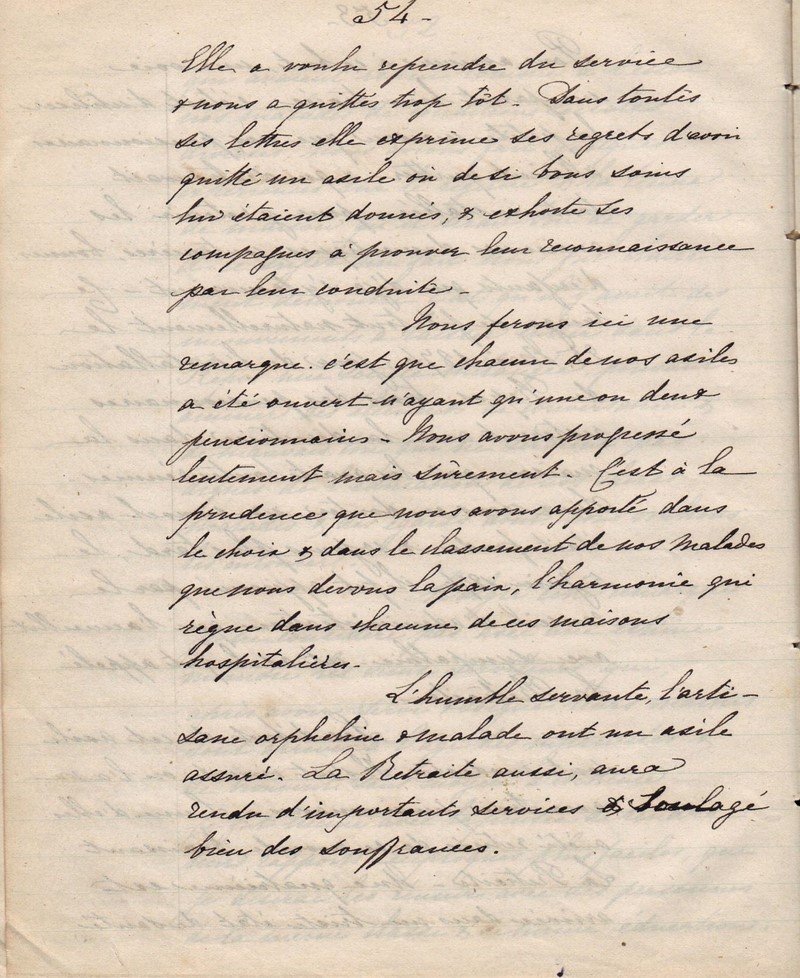 54 -
Elle a voulu reprendre du service
& nous a quittés trop tôt - Dans toutes
ses lettres elle exprime ses regrets d'avoir
quitté un asile où de si bons soins
lui étaient donnés, & exhorte ses
compagnes à prouver leur reconnaissance
par leur conduite -
Nous ferons ici une
remarque. c'est que chacun de nos asiles
a été ouvert n'ayant qu'une ou deux
pensionnaires - Nous avons progressé
lentement mais sûrement. C'est à la
prudence que nous avons apporté dans
le choix & dans le classement de nos malades
que nous devons la paix, l'harmonie qui
règne dans chacune de ces maisons
hospitalières -
L'humble servante, l'arti-
sane orpheline & malade ont un asile
assuré. La Retraite aussi, aura
rendu d'importants services & soulagé
bien des souffrances.